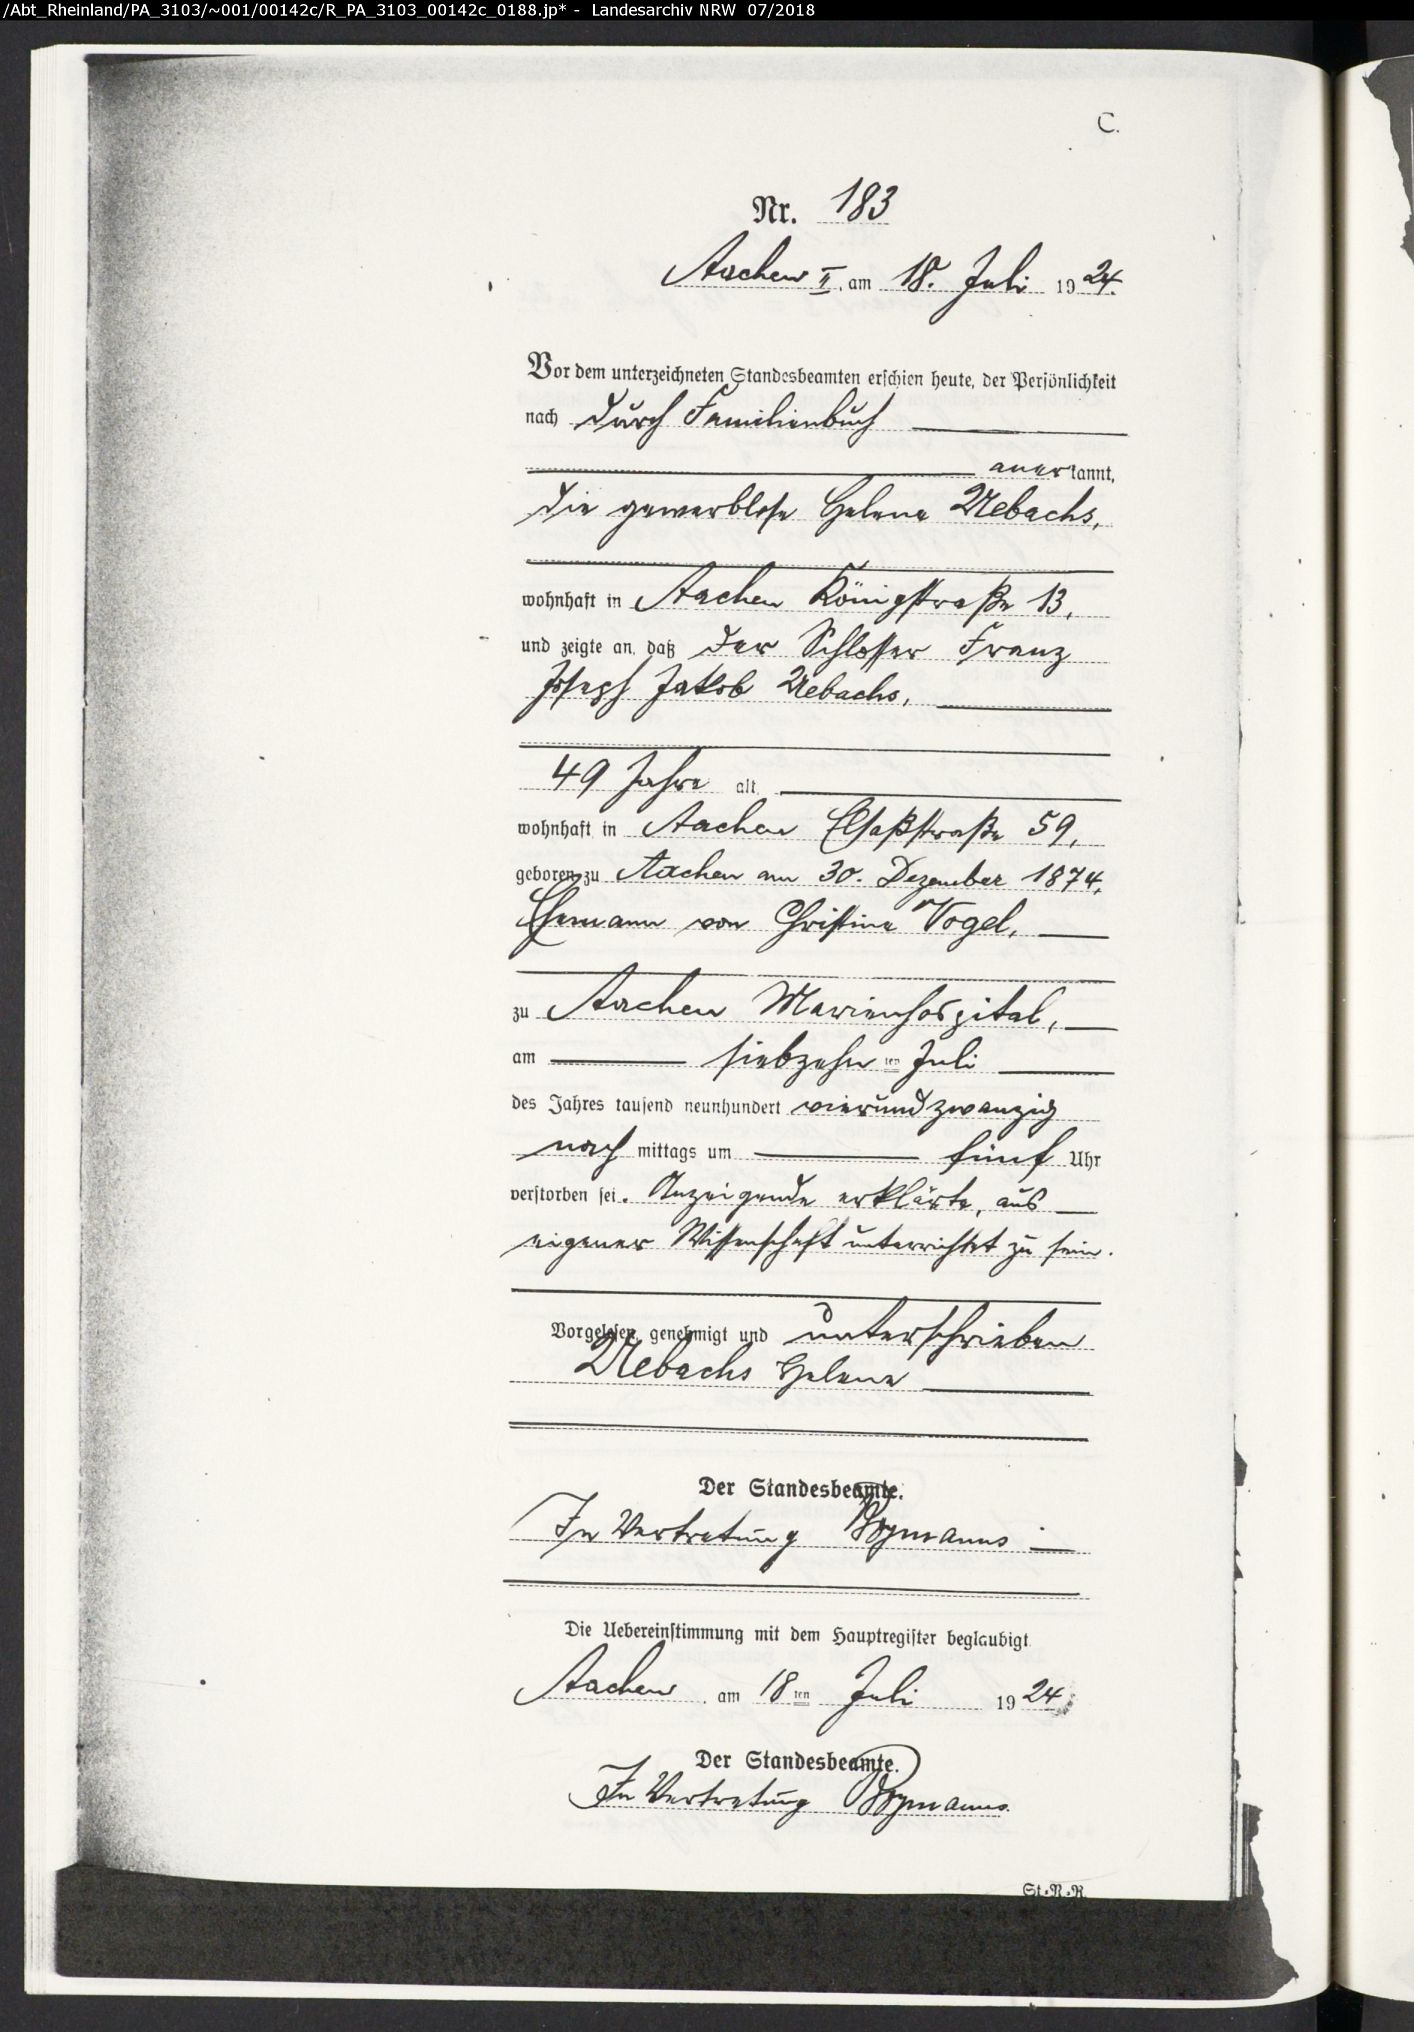 /Abt_Rheinland/PA_3103/~001/00142c/R_PA_3103_00142c_0188.jp* - Landesarchiv NRW 07/2018
C.
Nr. 183
Aachen II, am 18. Juli 1924.
Vor dem unterzeichneten Standesbeamten erschien heute, der Persönlichkeit
nach durch Familienbuch
anerkannt,
die gewerblose Helene Uebachs,
wohnhaft in Aachen Königstraße 13,
und zeigte an, daß der Schlosser Franz
Joseph Jakob Uebachs,
49 Jahre alt,
wohnhaft in Aachen Elsaßstraße 59,
geboren zu Aachen am 30. Dezember 1874,
Ehemann von Christine Vogel,
zu Aachen Marienhospital,
am siebzehnten Juli
des Jahres tausend neunhundert vierundzwanzig
nachmittags um fünf Uhr
verstorben sei. Anzeigende erklärte, aus
eigener Wissenschaft unterrichtet zu sein.
Vorgelesen, genehmigt und unterschrieben
Uebachs Helene
Der Standesbeamte.
In Vertretung
Die Uebereinstimmung mit dem Hauptregister beglaubigt
Aachen, am 18ten Juli 1924
Der Standesbeamte.
In Vertretung
St.-N.-R.